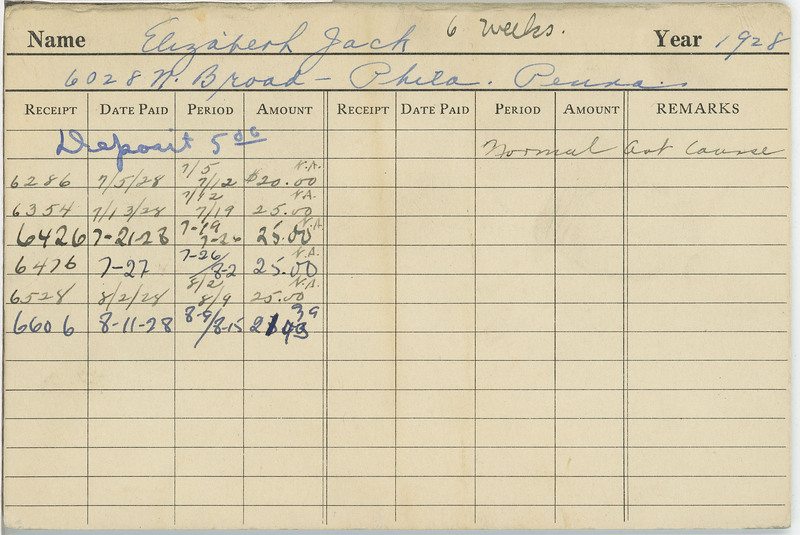 Name Elizabeth Jack 6 weeks. Year 1928
6028 N. Broad - Phila. Penna.
RECEIPT DATE PAID PERIOD AMOUNT RECEIPT DATE PAID PERIOD AMOUNT REMARKS
Deposit 5 00 Normal Art Course
7/5 N.A.
6286 7/5/28 7/12 $20.00
7/12 N.A.
6354 7/13/28 7/19 25.00
7-19 N.A.
6426 7-21-28 7-26 25.00
7-26 N.A.
6476 7-27 /8-2 25.00
8/2 N.A.
6528 8/2/28 8/9 25.00
8-9
6606 8-11-28 /8-15